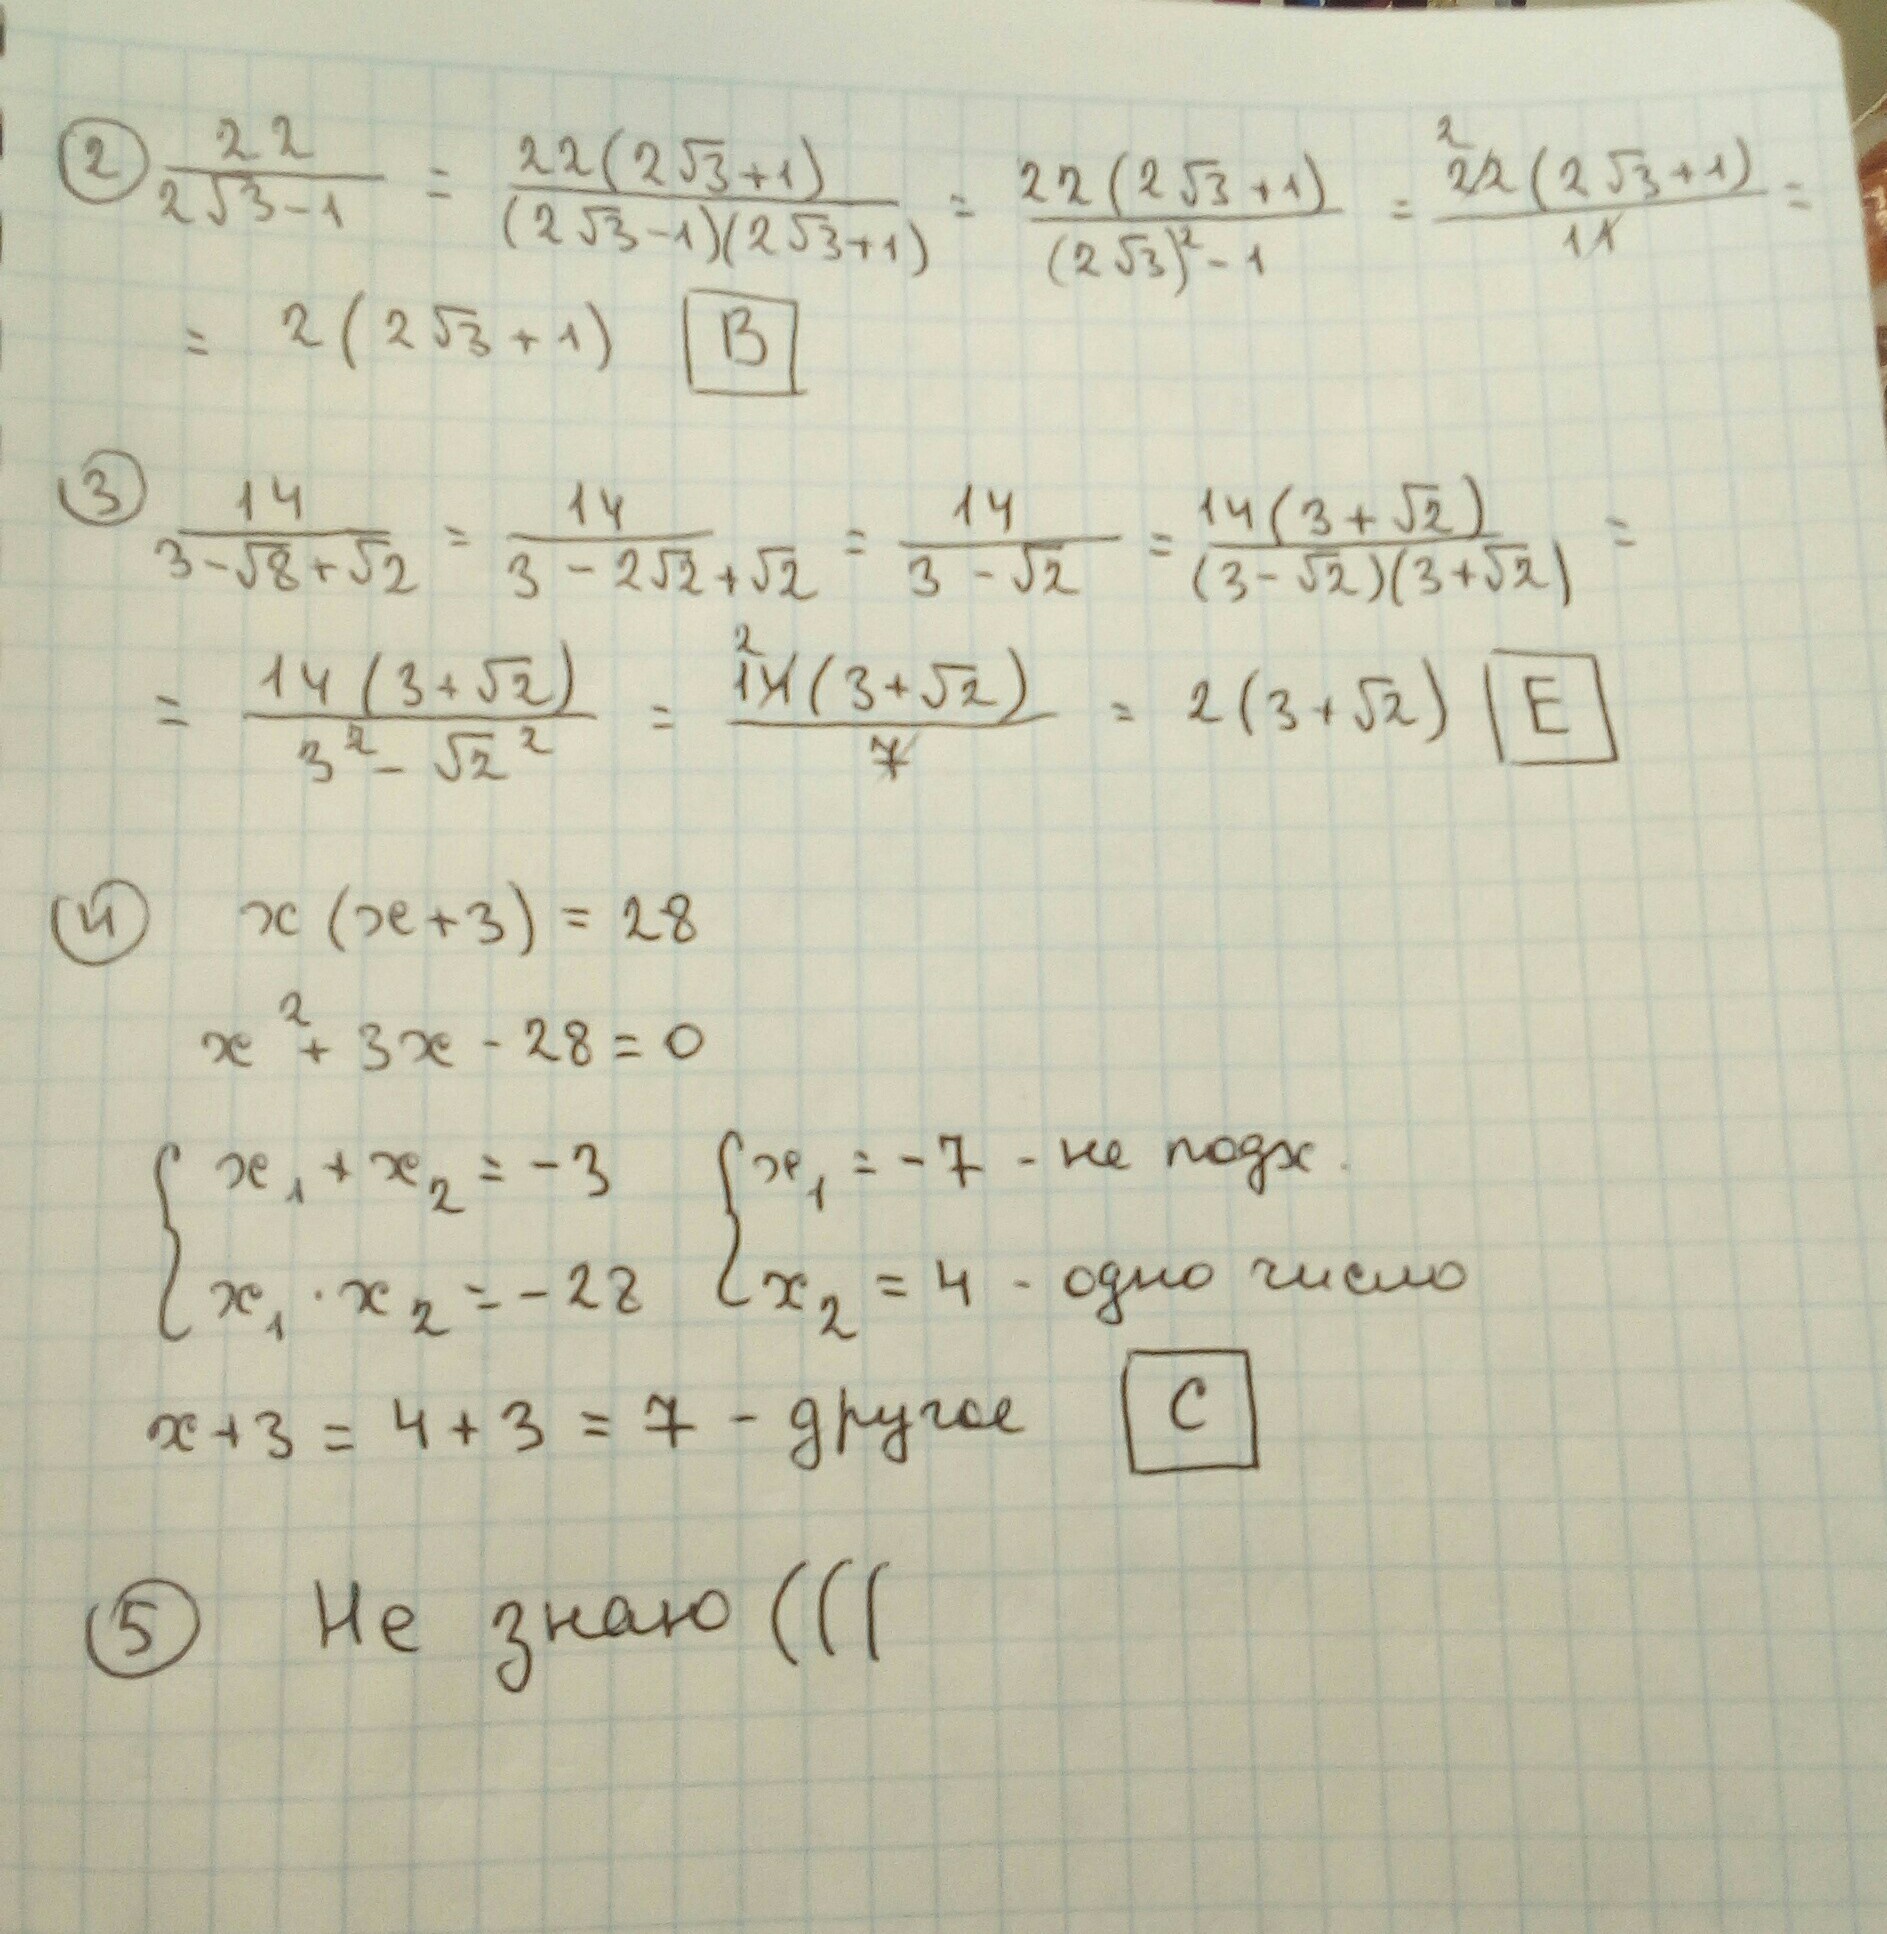 ② 22/(2√3-1) = 22(2√3+1)/((2√3-1)(2√3+1)) = 22(2√3+1)/((2√3)²-1) = ²22(2√3+1)/11 =
= 2(2√3+1) B
③ 14/(3-√8+√2) = 14/(3-2√2+√2) = 14/(3-√2) = 14(3+√2)/((3-√2)(3+√2)) =
= 14(3+√2)/(3²-√2²) = ²14(3+√2)/7 = 2(3+√2) E
④ x(x+3) = 28
x²+3x-28=0
{ x₁+x₂=-3 { x₁=-7 - не подх.
x₁·x₂=-28 x₂=4 - одно число
x+3=4+3=7 - другое C
⑤ Не знаю (((